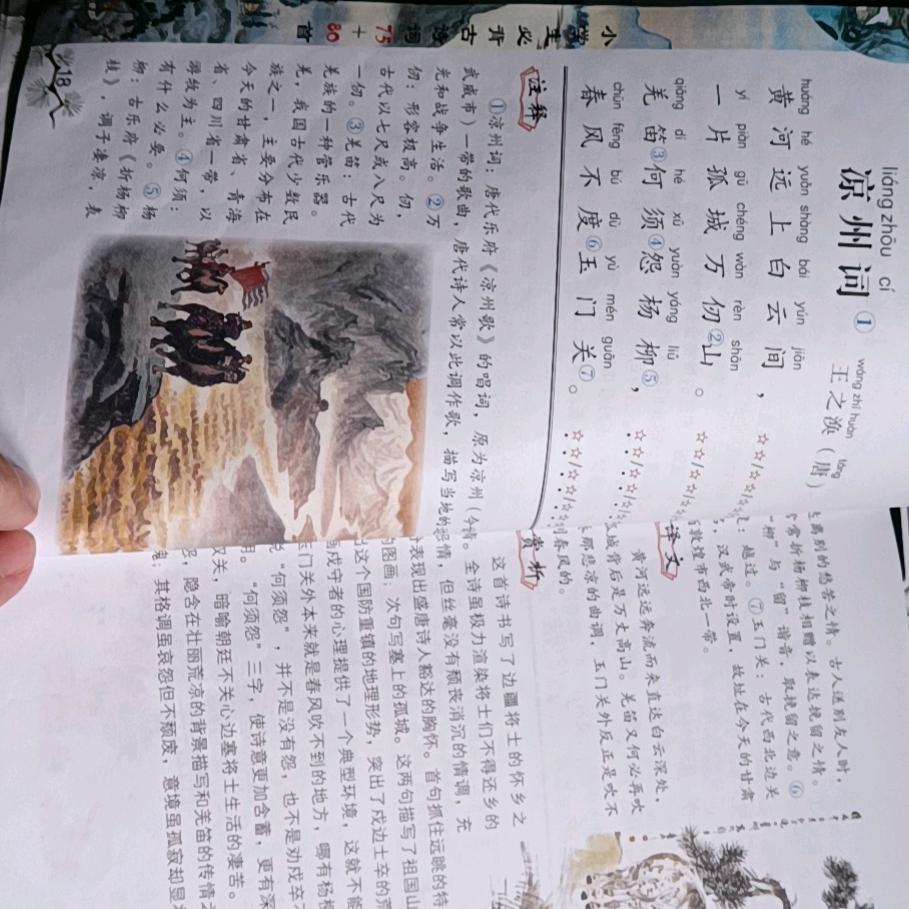 小学生必背古诗词75+80首
liáng zhōu cí
凉州词①
wáng zhī huàn táng
王之涣(唐)
huáng hé yuǎn shàng bái yún jiān
黄河远上白云间,
yí piàn gū chéng wàn rèn shān
一片孤城万仞②山。
qiāng dí hé xū yuàn yáng liǔ
羌笛③何须④怨杨柳⑤,
chūn fēng bú dù yù mén guān
春风不度⑥玉门关⑦。
注释
①凉州词:唐代乐府《凉州歌》的唱词,原为凉州(今
武威市)一带的歌曲,唐代诗人常以此调作歌,描写当地的
光和战争生活。②万
仞:形容极高。仞,
古代以七尺或八尺为
一仞。③羌笛:古代
羌族的一种管乐器。
羌,我国古代少数民
族之一,主要分布在
今天的甘肃省、青海
省、四川省一带,以
游牧为主。④何须:
有什么必要。⑤杨
柳:古乐府《折杨柳
枝》,调子凄凉,表
18
达离别的愁苦之情。古人送别友人时,
常常折杨柳枝相赠以表达挽留之情。
“柳”与“留”谐音,取挽留之意。⑥
度:越过。⑦玉门关:古代西北边关
,汉武帝时设置,故址在今天的甘肃
省敦煌市西北一带。
译文
黄河远远奔流而来直达白云深处,
孤城背后是万丈高山。羌笛又何必再吹
那悲凉的曲调,玉门关外反正是吹不
到春风的。
赏析
这首诗书写了边疆将士的怀乡之
情。全诗虽极力渲染将士们不得还乡的
怨情,但丝毫没有颓丧消沉的情调,充
分表现出盛唐诗人豁达的胸怀。首句抓住远眺的特
的图画;次句写塞上的孤城。这两句描写了祖国山
出这个国防重镇的地理形势,突出了戍边士卒的荒
画戍守者的心理提供了一个典型环境,这就不能
玉门关外本来就是春风吹不到的地方,哪有杨柳
说“何须怨”,并不是没有怨,也不是劝戍卒
用。“何须怨”三字,使诗意更加含蓄,更有深
汉关,暗喻朝廷不关心边塞将士生活的凄苦。
怨,隐含在壮丽荒凉的背景描写和羌笛的传情之
魂;其格调虽哀怨但不颓废,意境虽孤寂却显